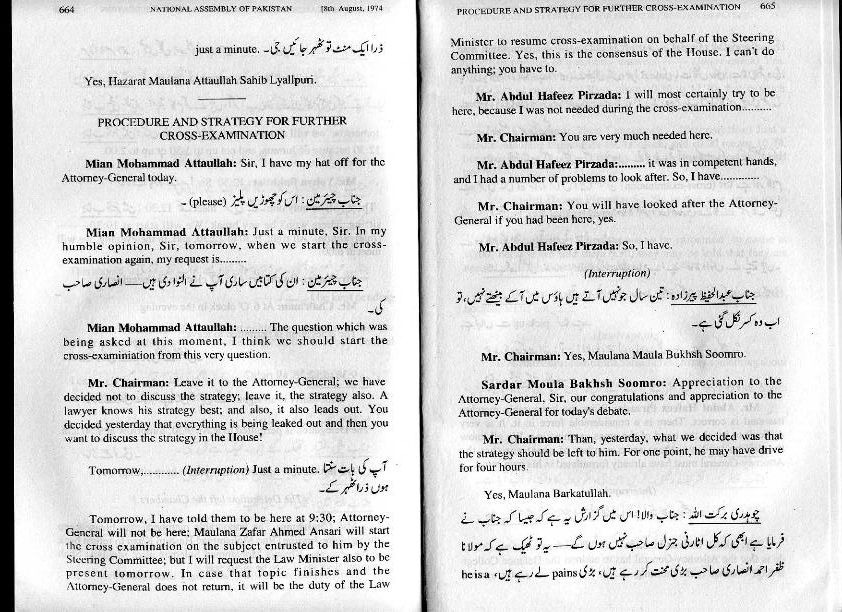 664 NATIONAL ASSEMBLY OF PAKISTAN [8th August, 1974
just a minute. ذرا ایک منٹ تو ٹھہر جائیں جی۔
Yes, Hazarat Maulana Attaullah Sahib Lyallpuri.
PROCEDURE AND STRATEGY FOR FURTHER
CROSS-EXAMINATION
Mian Mohammad Attaullah: Sir, I have my hat off for the
Attorney-General today.
جناب چیئرمین: اس کو چھوڑیں پلیز (please) ۔
Mian Mohammad Attaullah: Just a minute, Sir. In my
humble opinion, Sir, tomorrow, when we start the cross-
examination again, my request is.........
جناب چیئرمین: ان کی کتابیں ساری آپ نے الٹوا دی ہیں — انصاری صاحب
کی۔
Mian Mohammad Attaullah: ......... The question which was
being asked at this moment, I think we should start the
cross-examiniation from this very question.
Mr. Chairman: Leave it to the Attorney-General; we have
decided not to discuss the strategy; leave it, the strategy also. A
lawyer knows his strategy best; and also, it also leads out. You
decided yesterday that everything is being leaked out and then you
want to discuss the strategy in the House!
Tomorrow,............ (Interruption) Just a minute. آپ کی بات سنتا
ہوں ذرا ٹھہر کے۔
Tomorrow, I have told them to be here at 9:30; Attorney-
General will not be here; Maulana Zafar Ahmed Ansari will start
the cross examination on the subject entrusted to him by the
Steering Committee; but I will request the Law Minister also to be
present tomorrow. In case that topic finishes and the
Attorney-General does not return, it will be the duty of the Law
PROCEDURE AND STRATEGY FOR FURTHER CROSS-EXAMINATION 665
Minister to resume cross-examination on behalf of the Steering
Committee. Yes, this is the consensus of the House. I can't do
anything; you have to.
Mr. Abdul Hafeez Pirzada: I will most certainly try to be
here, because I was not needed during the cross-examination..........
Mr. Chairman: You are very much needed here.
Mr. Abdul Hafeez Pirzada:......... it was in competent hands,
and I had a number of problems to look after. So, I have.............
Mr. Chairman: You will have looked after the Attorney-
General if you had been here, yes.
Mr. Abdul Hafeez Pirzada: So, I have.
(Interruption)
جناب عبدالحفیظ پیرزادہ: تین سال جو نہیں آتے ہیں ہاؤس میں آ کے بیٹھتے نہیں، تو
اب وہ کسر نکل گئی ہے۔
Mr. Chairman: Yes, Maulana Maula Bukhsh Soomro.
Sardar Moula Bakhsh Soomro: Appreciation to the
Attorney-General, Sir, our congratulations and appreciation to the
Attorney-General for today's debate.
Mr. Chairman: Than, yesterday, what we decided was that
the strategy should be left to him. For one point, he may have drive
for four hours.
Yes, Maulana Barkatullah.
چوہدری برکت اللہ: جناب والا! اس میں گزارش یہ ہے کہ جیسا کہ جناب نے
فرمایا ہے ابھی کہ کل اٹارنی جنرل صاحب نہیں ہوں گے — یہ تو ٹھیک ہے کہ مولانا
ظفر احمد انصاری صاحب بڑی محنت کر رہے ہیں، بڑی pains لے رہے ہیں، he is a